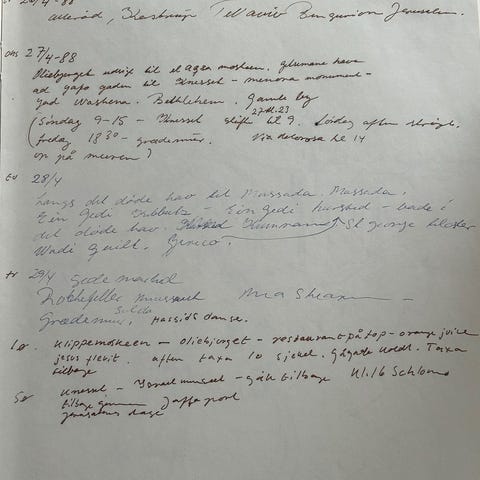 26/4-88
allerød, Kastrup Tel aviv Bengurion Jerusalem.
ons 27/4-88
Oliebjerget udsigt til el aqsa moskeen, getsemane have
ad Jafo gaden til Knesset - menora monument -
Gamle by
(Søndag 9-15 - Knesset 27 kl. 23 til 9. Lørdag aften
fredag 18 30 - grædemur. Via dolorosa kl 14
op på muren)
to 28/4
Langs det døde hav til Massada. Massada.
Ein Gedi Kibbutz - Ein Gedi - bade i
det døde hav. Kumran St george kloster
Wadi Quilt. Jerico.
fr 29/4 gede marked
Rockefeller museum Mea Shearim -
Grædemur, Hassids danse.
Lø. Klippemoskeen - Oliebjerget - restaurant på top - orange juice
jesus flevit. aften taxa 10 sjekel. Gågade koldt. Taxa
tilbage
Sø Knesset - Israel museet - gåtilbage Kl. 16
tilbage gennem Jaffa port
jerusalems dage